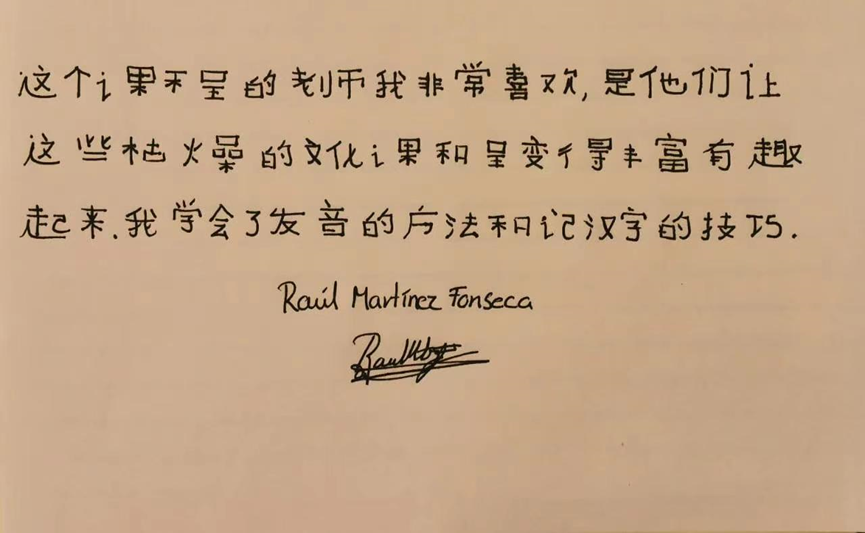 这个课程的老师我非常喜欢,是他们让
这些枯燥的文化课和程变得丰富有趣
起来.我学会了发音的方法和记汉字的技巧.
Raúl Martínez Fonseca